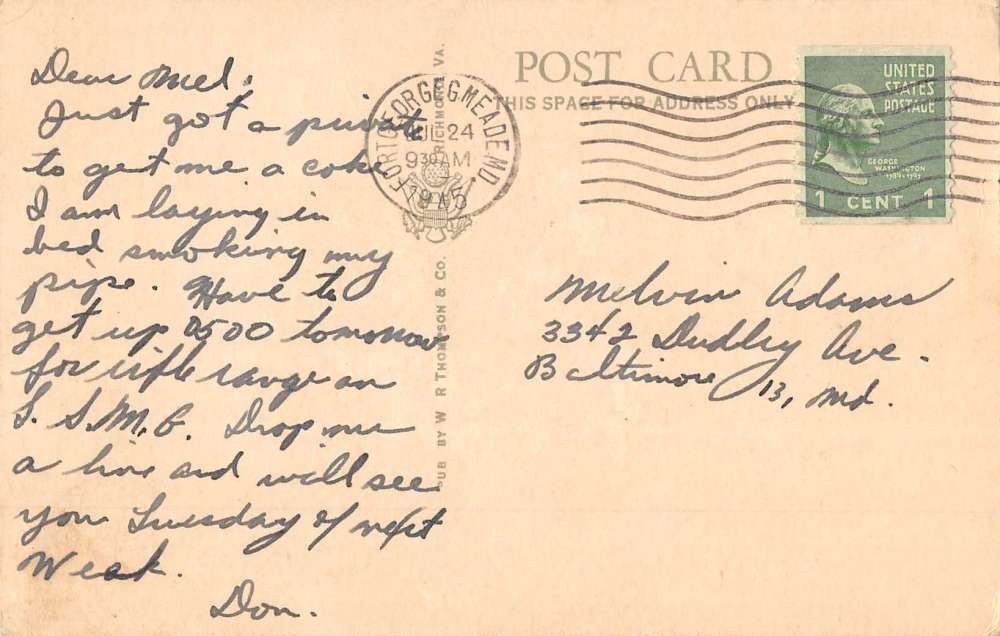 Dear Mel,
Just got a private
to get me a coke
I am laying in
bed smoking my
pipe. Have to
get up 0500 tomorrow
for rifle range on
S. S.M.G. Drop me
a line and will see
you Tuesday of next
Weak.
Don.
RICHMOND, VA.
PUB BY W R THOMPSON & CO.
POST CARD
THIS SPACE FOR ADDRESS ONLY
FORT GEORGE G. MEADE MD.
24
930AM
UNITED
STATES
POSTAGE
GEORGE
WASHINGTON
1789-1797
1 CENT 1
Melvin Adams
3342 Dudley Ave.
Baltimore 13, Md.